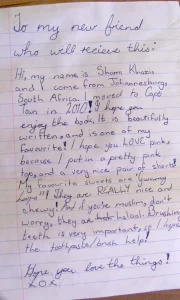 To my new friend
who will recieve this:
Hi, my name is Shams
and I come from Johannesburg,
South Africa. I moved to Cape
Town in 2010! I hope you
enjoy the book. It is beautifully
written, and is one of my
favourite! I hope you LOVE pink,
because I put in a pretty pink
top, and a very nice pair of shorts!
My favourite sweets are yummy
They are REALLY nice and
chewy! And if you're muslim, don't
worry, they are halaal. Brushing
teeth is very important, so I hope
the toothpaste/brush helps!
Hope you love the things!
XOX